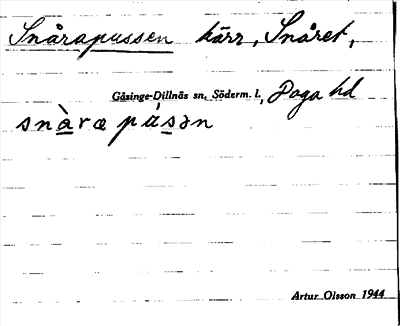 Snårapussen kärr, Snåret,
Gåsinge-Dillnäs sn, Söderm. l., Daga hd
snàræpásən
Artur Olsson 1944